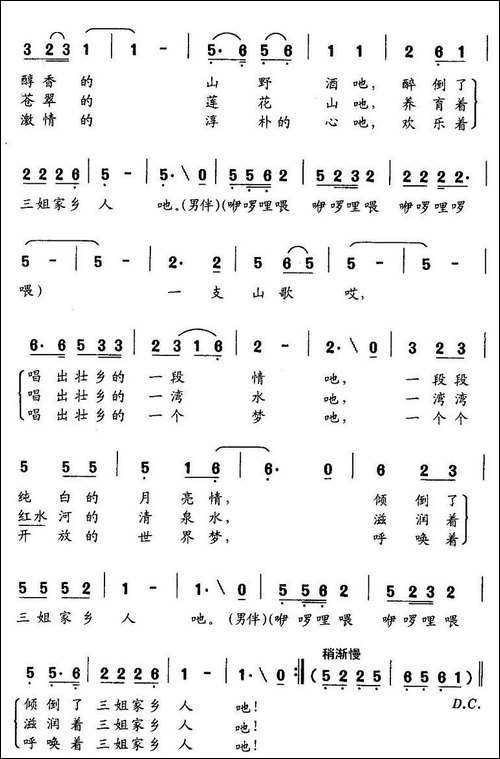 3 2 3 1 | 1 - | 5· 6 5 6 | 1 1 | 2 6 1 |
醇香的 山野 酒吔, 醉倒了
苍翠的 莲花 山吔, 养育着
激情的 淳朴的 心吔, 欢乐着
2 2 2 6 | 5 - | 5·\ 0 | 5 5 6 2 | 5 2 3 2 | 2 2 2 2· |
三姐家乡 人 吔。(男伴)(咿啰哩喂 咿啰哩喂 咿啰哩啰
5 - | 5 - | 2· 2 | 5 6 5 | 5 - | 5 - |
喂) 一 支 山 歌 哎,
6· 6 5 3 3 | 2 3 1 6 | 2 - | 2·\ 0 | 3 2 3 |
唱出壮乡的 一段 情 吔, 一段段
唱出壮乡的 一湾 水 吔, 一湾湾
唱出壮乡的 一个 梦 吔, 一个个
5 5 5 | 5 1 6 | 6· 0 | 6 2 3 |
纯白的 月亮情, 倾倒了
红水河的 清泉水, 滋润着
开放的 世界梦, 呼唤着
5 5 5 2 | 1 - | 1·\ 0 | 5 5 6 2 | 5 2 3 2 |
三姐家乡 人 吔。(男伴)(咿啰哩喂 咿啰哩喂
稍渐慢
5 5· 6 | 2 2 2 6 | 1 - | 1·\ 0 :‖ (5 2 2 5 | 6 5 6 1) ‖
D.C.
倾倒了 三姐家乡 人 吔!
滋润着 三姐家乡 人 吔!
呼唤着 三姐家乡 人 吔!